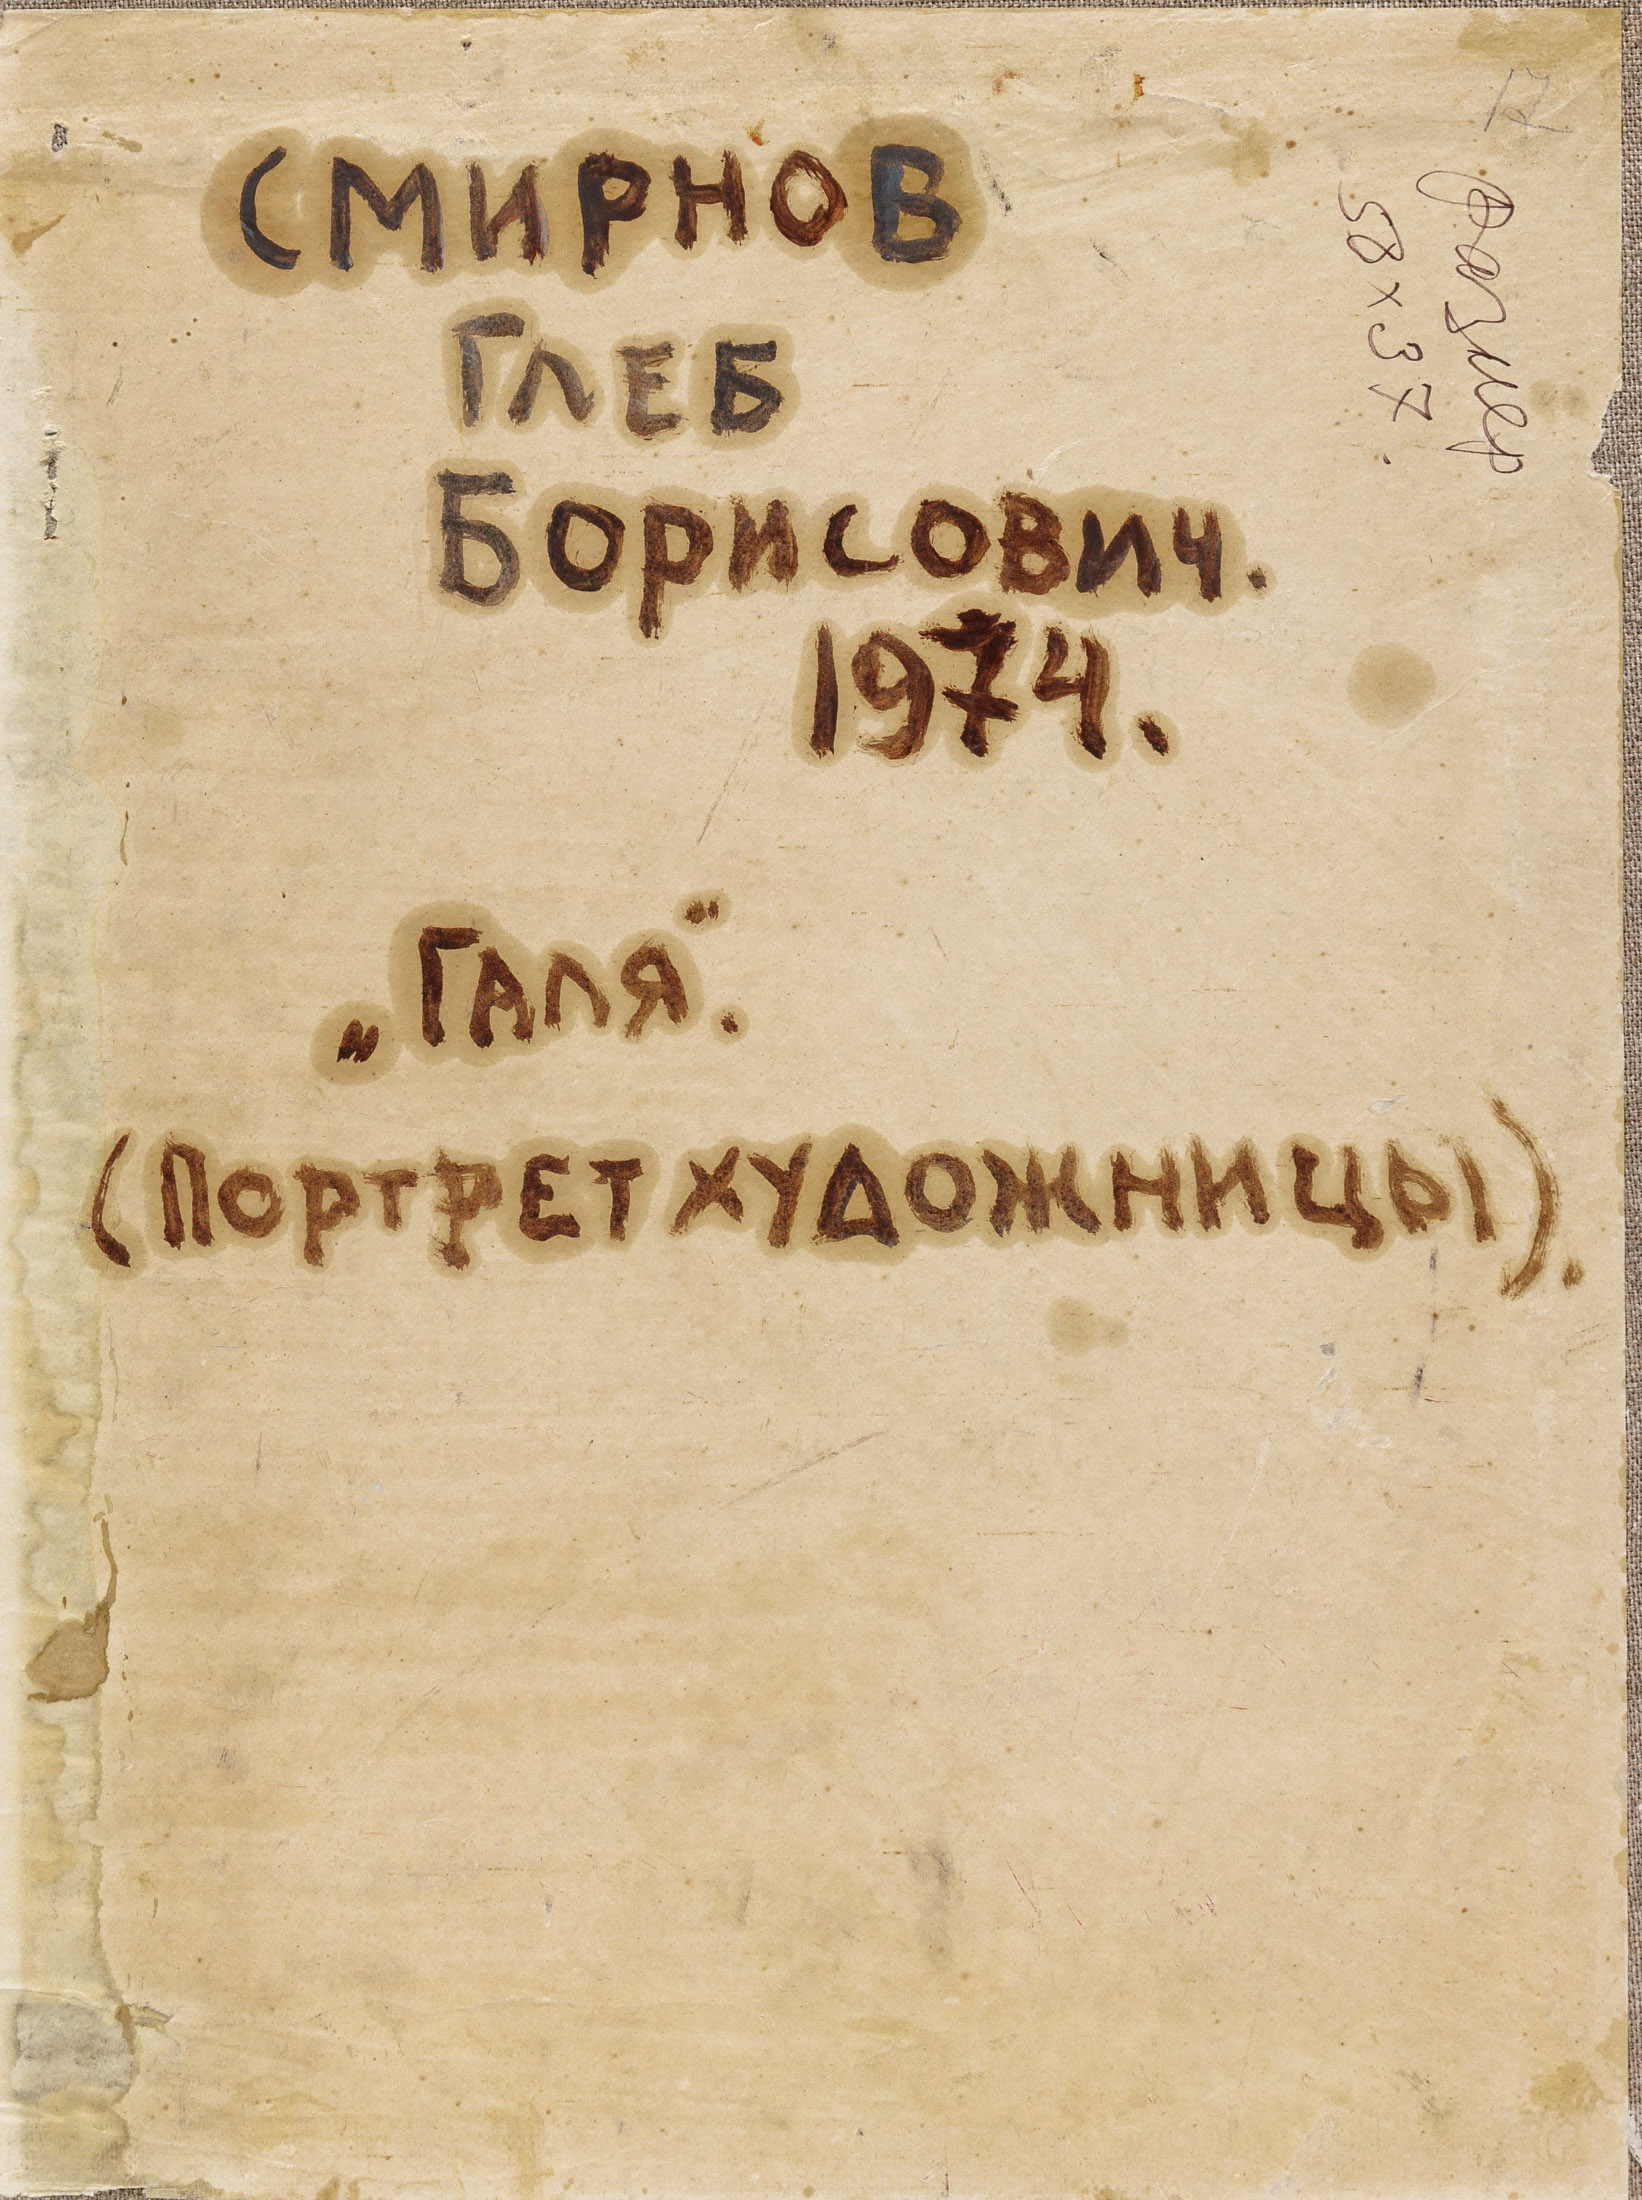 17
размер
58 х 37.
СМИРНОВ
ГЛЕБ
БОРИСОВИЧ.
1974.
„ГАЛЯ“.
(ПОРТРЕТ ХУДОЖНИЦЫ).